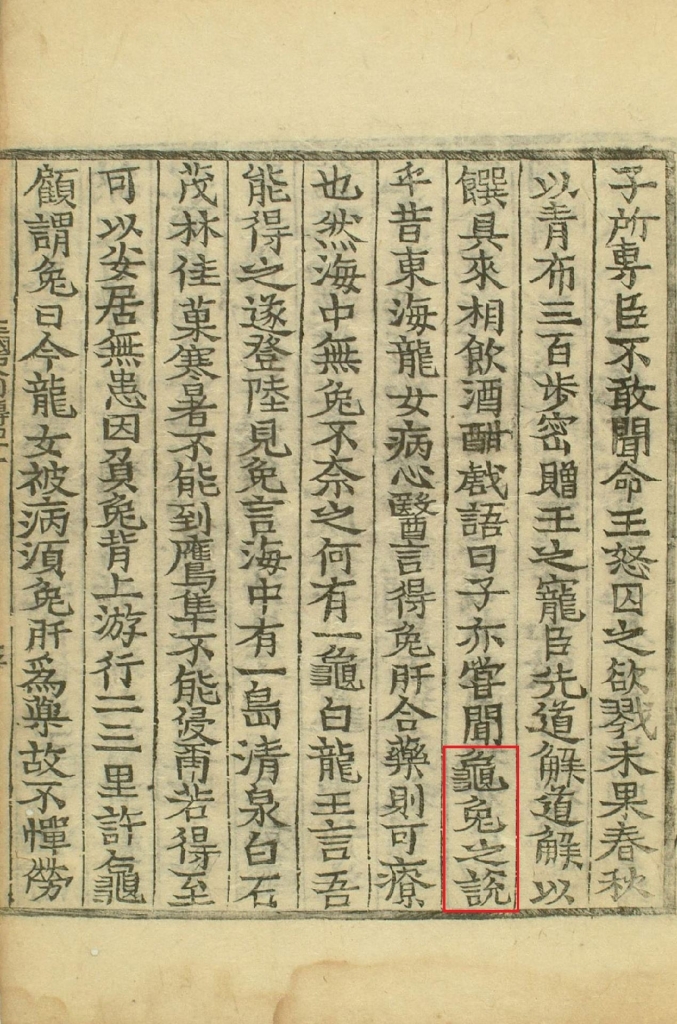 子所專臣不敢聞命王怒囚之欲戮未果春秋
以青布三百步密贈王之寵臣先道解道解以
饌具來相飮酒酣戱語曰子亦嘗聞龜兔之說
乎昔東海龍女病心醫言得兔肝合藥則可療
也然海中無兔不奈之何有一龜白龍王言吾
能得之遂登陸見兔言海中有一島淸泉白石
茂林佳菓寒暑不能到鷹隼不能侵爾若得至
可以安居無患因負兔背上游行二三里許龜
顧謂兔曰今龍女被病湏兔肝爲藥故不憚勞